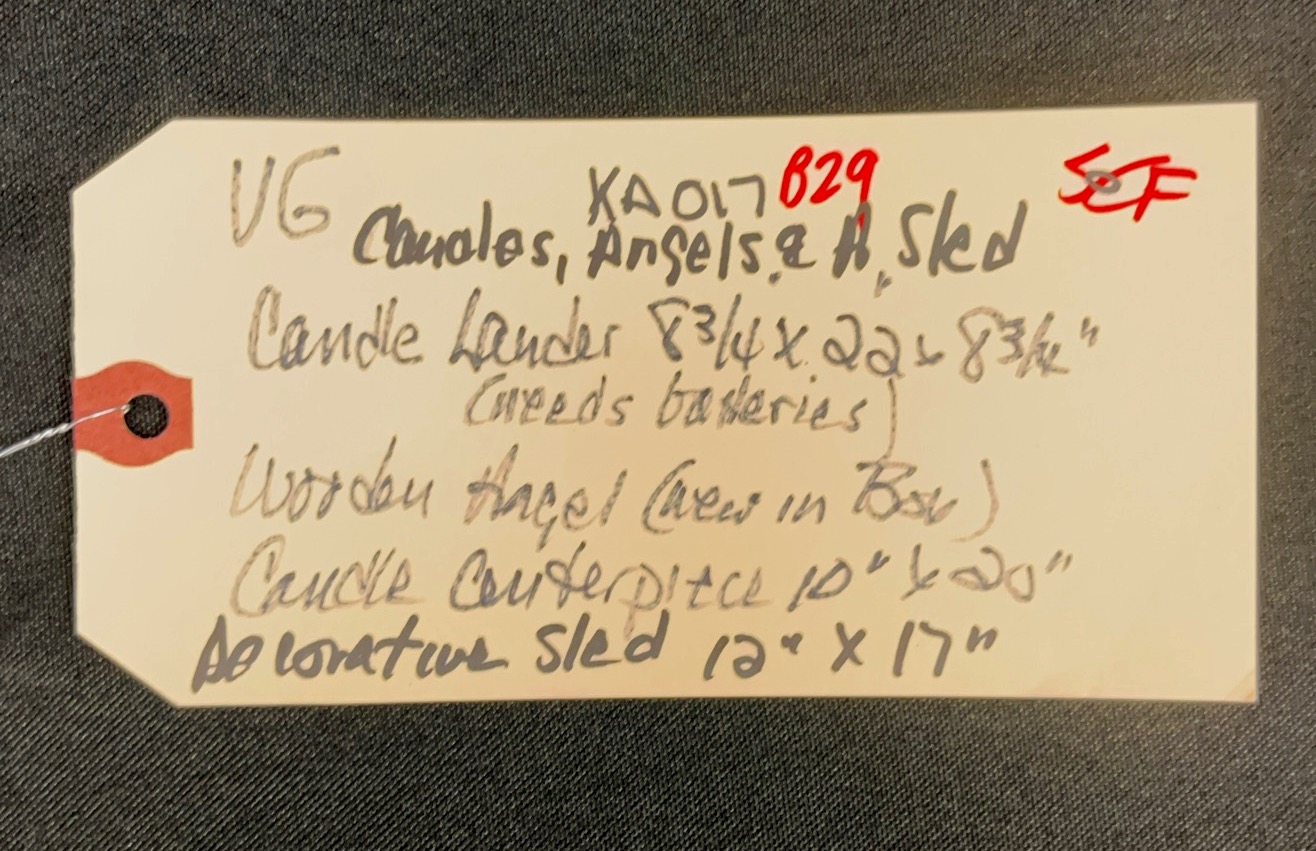 VG KA017 B29
Candles, Angels, & A, Sled
Candle Lander 8 3/4 x 22 x 8 3/4"
(needs batteries)
Wooden Angel (new in Box)
Candle Centerpiece 10" x 20"
Decorative Sled 12" X 17"